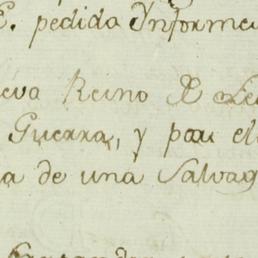 E. pedida Informe
eva Reino D Le
Guerra, y par el
a de una Salvag